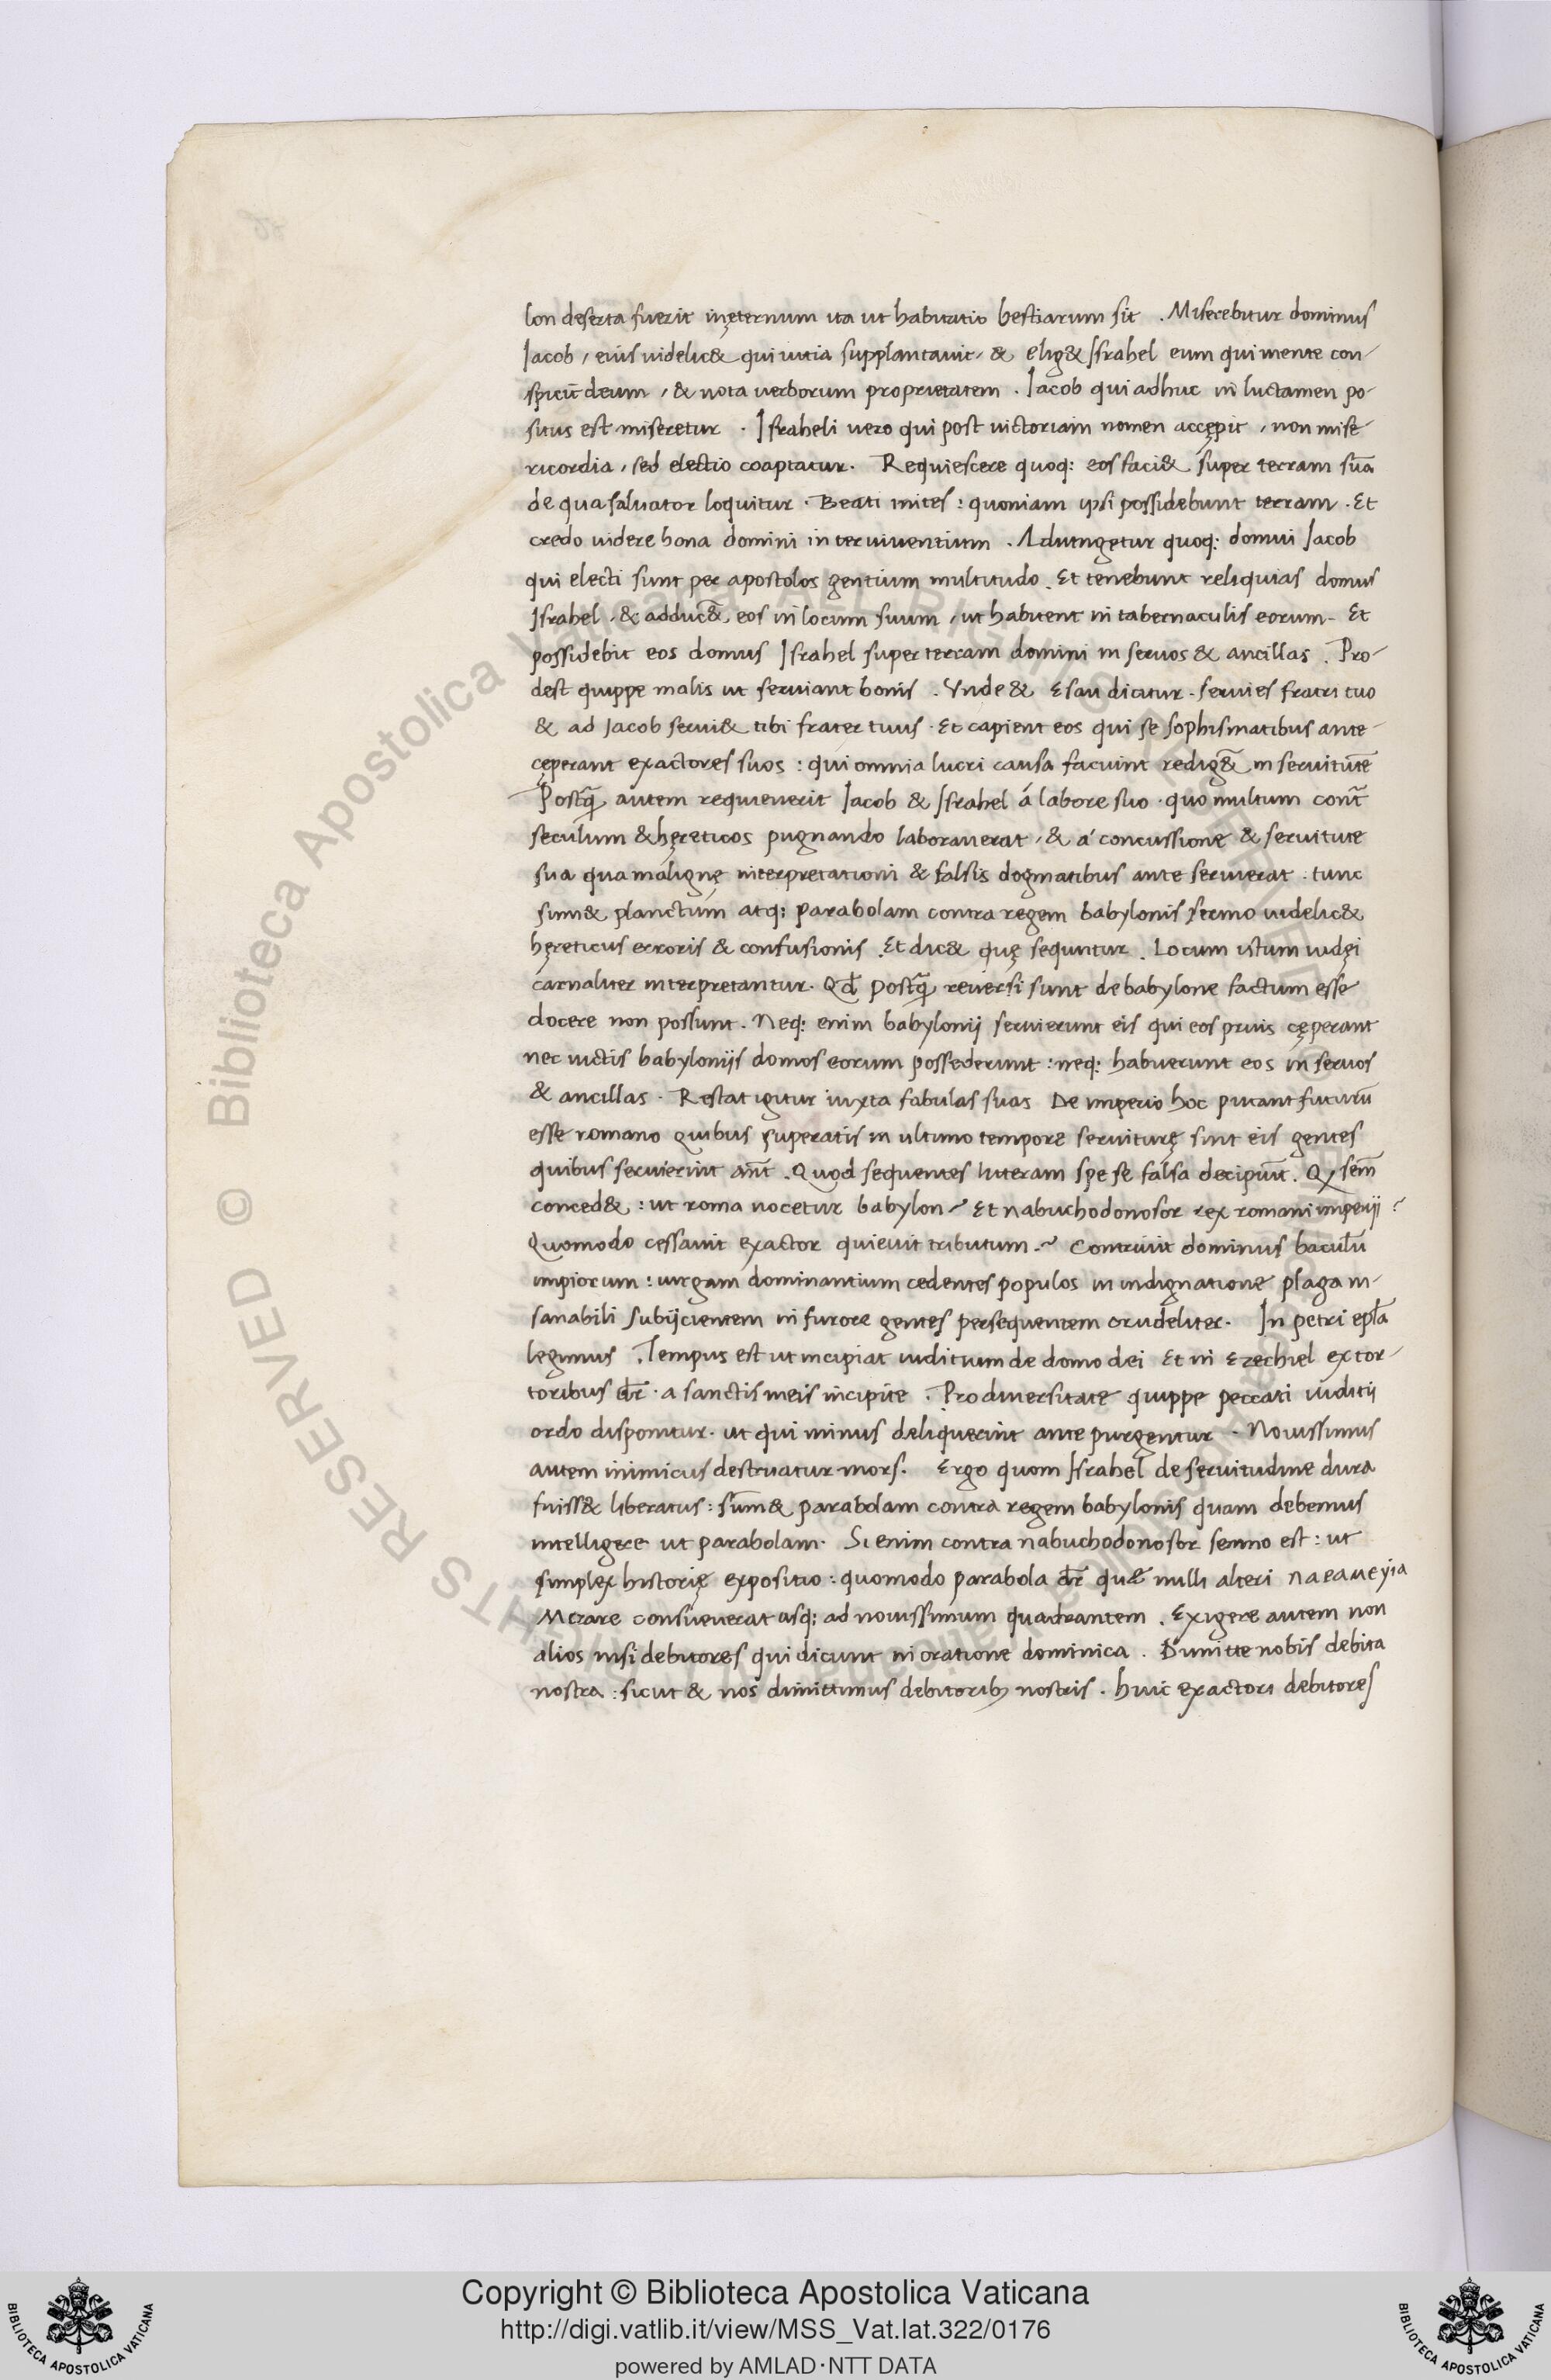 lon deserta fuerit inęternum ita ut habitatio bestiarum sit . Miserebitur dominus
Jacob , eius uidelic& qui uitia supplantauit , & elig& Israhel eum qui mente con-
spicit deum , & nota uerborum proprietatem . Jacob qui adhuc in luctamen po-
situs est miseretur . Israheli uero qui post uictoriam nomen accępit , non mise-
ricordia , sed electio coaptatur . Requiescere quoq: eos faci& super terram suā
de qua saluator loquitur . Beati mites : quoniam ipsi possidebunt terram . Et
credo uidere bona domini in ter uiuentium . Adiungetur quoq: domui Jacob
qui electi sunt per apostolos gentium multitudo . Et tenebunt reliquias domus
Israhel , & adduc&̄ eos in locum suum , ut habitent in tabernaculis eorum . Et
possidebit eos domus Israhel super terram domini in seruos & ancillas . Pro-
dest quippe malis ut seruiant bonis . Vnde & Esau dicitur . seruies fratri tuo
& ad Jacob serui& tibi frater tuus . Et capient eos qui se sophismatibus ante-
cęperant exactores suos : qui omnia lucri causa faciunt redig&̄ in seruitutē
Postq̄ autem requieuerit Jacob & Israhel á labore suo . quo multum cont̄
seculum & hęreticos pugnando laborauerat , & a' concussione & seruitute
sua qua malignę interpretationi & falsis dogmatibus ante seruierat . tunc
sum& planctum atq: parabolam contra regem babylonis sermo uidelic&
hęreticus erroris & confusionis . Et dic& quę sequntur . Locum istum iudęi
carnaliter interpretantur . Qd̄ postq̄ reuersi sunt de babylone factum esse
docere non possunt . Neq: enim babylonij seruierunt eis qui eos prius cęperant
nec uictis babylonijs domos eorum possederunt : neq: habuerunt eos in seruos
& ancillas . Restat igitur iuxta fabulas suas De imperio hoc putant futurū
esse romano quibus superatis in ultimo tempore seruiturę sint eis gentes
quibus seruierint an̄t . Quod sequentes litteram spe se falsa decipiūt .
conced& : ut roma uocetur babylon Et nabuchodonosor rex romani imperij ?
Quomodo cessauit exactor quieuit tributum . Contriuit dominus baculū
impiorum : uirgam dominantium cedentes populos in indignatione plaga in-
sanabili subijcientem in furore gentes persequentem crudeliter . In petri epl̄a
legimus . Tempus est ut incipiat iuditium de domo dei Et in Ezechiel ex tor-
toribus dr̄ . a sanctis meis incipite . Pro diuersitate quippe peccati iuditij
ordo disponitur . ut qui minus deliquerint ante purgentur . Nouissimus
autem inimicus destruatur mors . Ergo quom Israhel de seruitudine dura
fuiss& liberatus : sūm& parabolam contra regem babylonis quam debemus
intelligere ut parabolam . Si enim contra nabuchodonosor sermo est : ut
simplex historię expositio : quomodo parabola dr̄ quæ nulli alteri
Metare consueuerat usq: ad nouissimum quadrantem . Exigere autem non
alios nisi debitores qui dicunt in oratione dominica . Dimitte nobis debita
nostra : sicut & nos dimittimus debitorib; nostris . huic exactori debitores
Copyright © Biblioteca Apostolica Vaticana
http://digi.vatlib.it/view/MSS_Vat.lat.322/0176
powered by AMLAD·NTT DATA